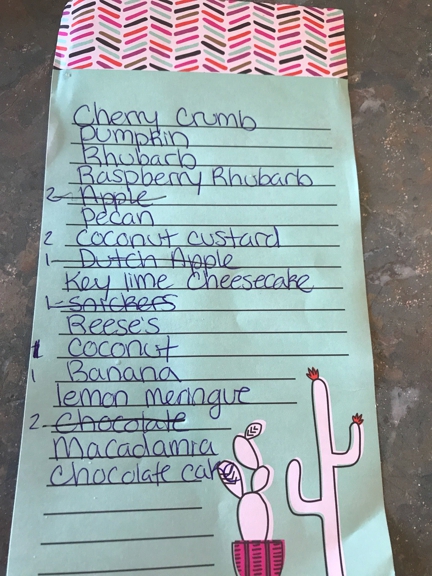 Cherry Crumb
Pumpkin
Rhubarb
Raspberry Rhubarb
2 Apple
Pecan
2 Coconut custard
1 Dutch Apple
Key lime Cheesecake
1 Snickers
Reese's
1 Coconut
1 Banana
lemon meringue
2 Chocolate
Macadamia
Chocolate cake